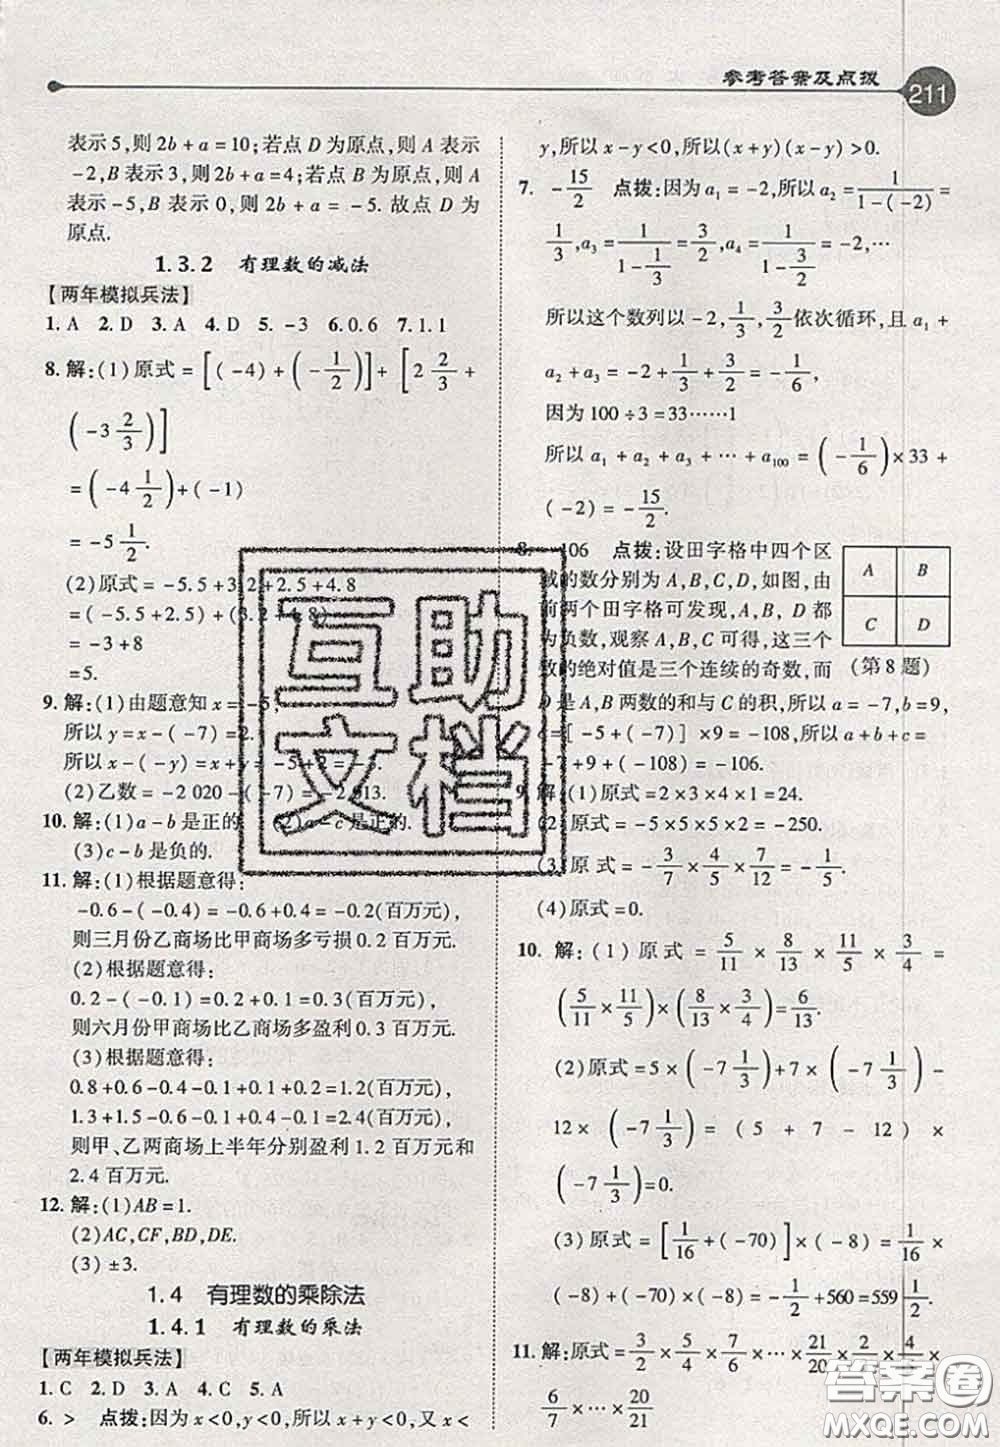 参考答案及点拨
211
表示5,则2b+a=10;若点D为原点,则A表示
-2,B表示3,则2b+a=4;若点B为原点,则A
表示-5,B表示0,则2b+a=-5.故点D为
原点.
1.3.2 有理数的减法
【两年模拟兵法】
1.A 2.D 3.A 4.D 5.-3 6.0.6 7.1.1
8.解:(1)原式=[(-4)+(-1/2)]+[2 2/3+
(-3 2/3)]
=(-4 1/2)+(-1)
=-5 1/2.
(2)原式=-5.5+3.2+2.5+4.8
=(-5.5+2.5)+(3.2+4.8)
=-3+8
=5.
9.解:(1)由题意知x=-5,
所以y=x-(-7)=2.
所以x-(-y)=x+y=-5+2=-3.
(2)乙数=-2 020-(-7)=-2 013.
10.解:(1)a-b是正的. (2)a-c是正的.
(3)c-b是负的.
11.解:(1)根据题意得:
-0.6-(-0.4)=-0.6+0.4=-0.2(百万元),
则三月份乙商场比甲商场多亏损0.2百万元.
(2)根据题意得:
0.2-(-0.1)=0.2+0.1=0.3(百万元),
则六月份甲商场比乙商场多盈利0.3百万元.
(3)根据题意得:
0.8+0.6-0.4-0.1+0.1+0.2=1.2(百万元),
1.3+1.5-0.6-0.1+0.4-0.1=2.4(百万元),
则甲、乙两商场上半年分别盈利1.2百万元和
2.4百万元.
12.解:(1)AB=1.
(2)AC,CF,BD,DE.
(3)±3.
1.4 有理数的乘除法
1.4.1 有理数的乘法
【两年模拟兵法】
1.C 2.D 3.A 4.C 5.A
6.> 点拨:因为x<0,y<0,所以x+y<0,又x<
y,所以x-y<0,所以(x+y)(x-y)>0.
7.-15/2 点拨:因为a₁=-2,所以a₂=1/(1-(-2))=
1/3,a₃=1/(1-1/3)=3/2,a₄=1/(1-3/2)=-2,…
所以这个数列以-2,1/3,3/2依次循环,且a₁+
a₂+a₃=-2+1/3+3/2=-1/6,
因为100÷3=33……1
所以a₁+a₂+a₃+…+a₁₀₀=(-1/6)×33+
(-2)=-15/2.
8.-106 点拨:设田字格中四个区
域的数分别为A,B,C,D,如图,由
前两个田字格可发现,A,B,D都
为负数,观察A,B,C可得,这三个
数的绝对值是三个连续的奇数,而
D是A,B两数的和与C的积,所以a=-7,b=9,
c=[-5+(-7)]×9=-108,所以a+b+c=
-7+9+(-108)=-106.
A B
C D
(第8题)
9.解:(1)原式=2×3×4×1=24.
(2)原式=-5×5×5×2=-250.
(3)原式=-3/4×4/5×7/12×5/7=-1/4.
(4)原式=0.
10.解:(1)原式=5/11×8/13×11/5×3/4=
(5/11×11/5)×(8/13×3/4)=6/13.
(2)原式=5×(-7 1/3)+7×(-7 1/3)-
12×(-7 1/3)=(5+7-12)×
(-7 1/3)=0.
(3)原式=[1/16+(-70)]×(-8)=1/16×
(-8)+(-70)×(-8)=-1/2+560=559 1/2.
11.解:原式=3/2×5/4×7/6×…×21/20×2/3×4/5×
6/7×…×20/21
互助
文档
答案圈
MXQE.COM